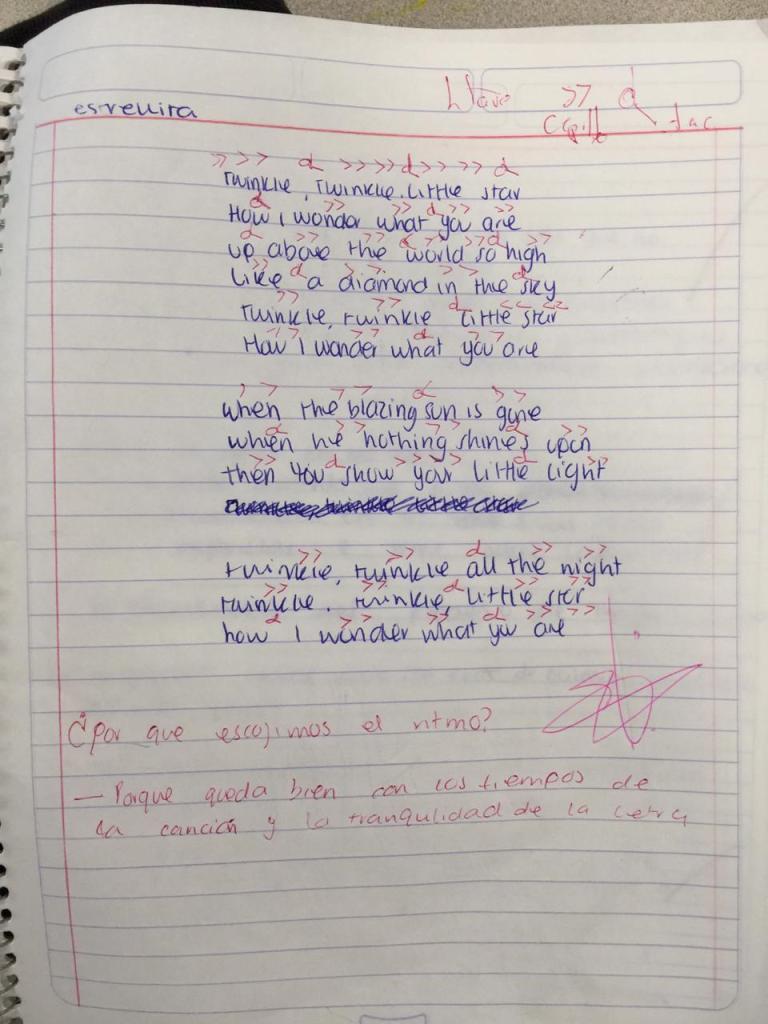 estrellita
Llave >> d
Cepillo tac
>> > > d > > > > d > > > > d
Twinkle, Twinkle. Little star
How I wonder what you are
up above the world so high
Like a diamond in the sky
Twinkle, twinkle Little star
How I wonder what you are
when the blazing sun is gone
when he nothing shines upon
then you show your little light
twinkle, twinkle all the night
twinkle. twinkle, little star
how I wonder what you are
¿por que escojimos el ritmo?
— Porque queda bien con los tiempos de
la canción y la tranqulidad de la letra